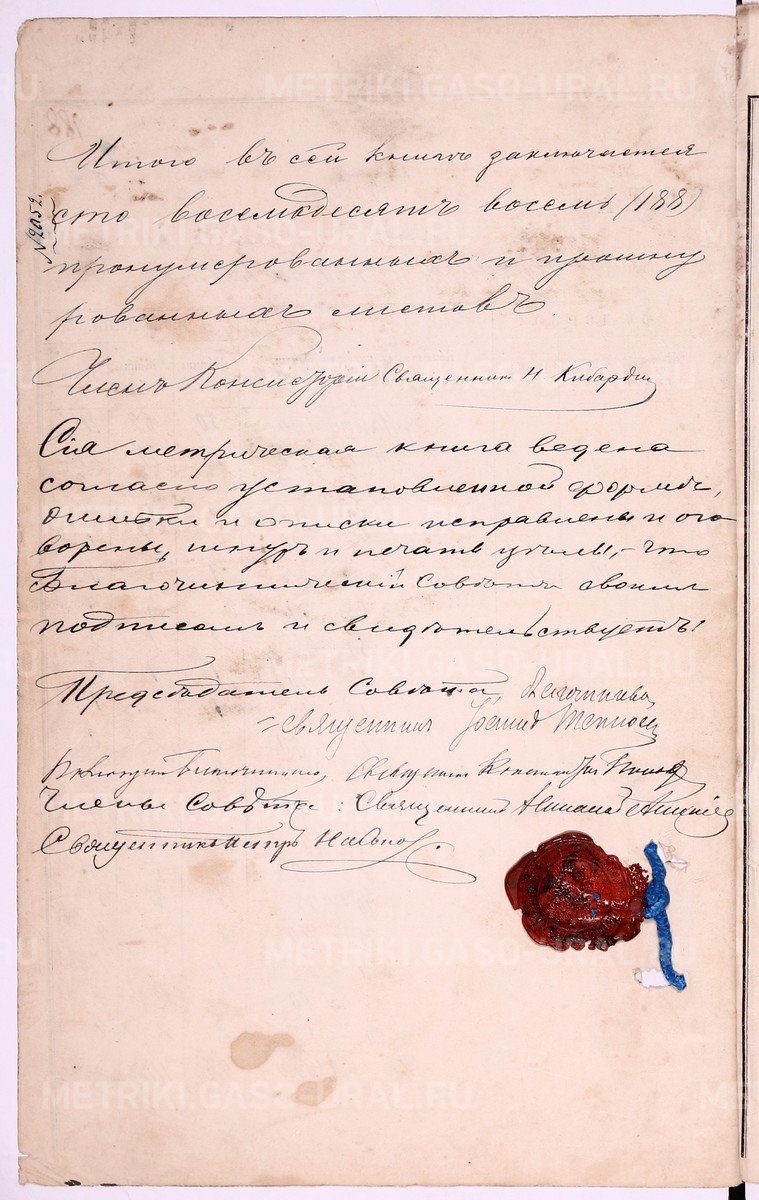 Итого въ сей книгѣ заключается
сто восемьдесятъ восемь (188)
пронумерованныхъ и прошну
рованныхъ листовъ.
№ 2052.
Членъ Консисторіи Священникъ Н Кибардин
Сія метрическая книга ведена
согласно установленной формѣ,
ошибки и описки исправлены и ого
ворены, шнуръ и печать цѣлы, – что
Благочинническій Совѣтъ своимъ
подписомъ и свидѣтельствуетъ:
Предсѣдатель Совѣта,
священникъ
Священникъ
Члены Совѣта: Священникъ
Священникъ Петръ
METRIKI.GASO-URAL.RU